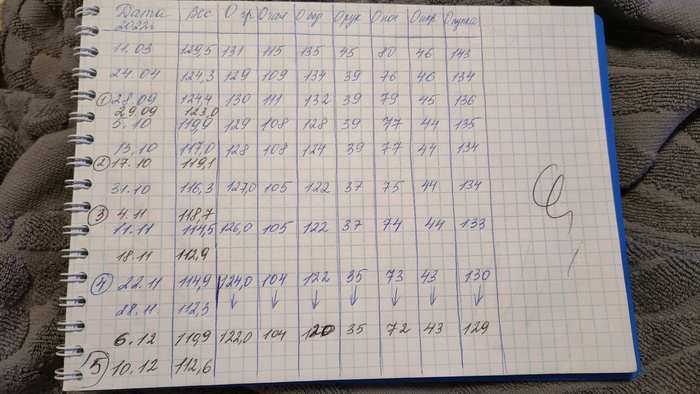 Дата Вес О гр О тал О под О рук О ног О икр О пупка
2022г
11.03 129,5 131 115 135 45 80 46 143
24.04 124,3 129 109 134 39 76 46 134
① 28.09 124,4 130 111 132 39 79 45 136
29.09 123,0
5.10 119,9 129 108 128 39 77 44 135
13.10 117,0 128 108 124 39 77 44 134
② 17.10 119,1
31.10 116,3 127,0 105 122 37 75 44 134
③ 4.11 118,7
11.11 114,5 126,0 105 122 37 74 44 133
18.11 112,9
④ 22.11 114,9 124,0 104 122 35 73 43 130
28.11 112,5 ↓ ↓ ↓ ↓ ↓ ↓ ↓
6.12 119,9 122,0 104 120 35 72 43 129
⑤ 10.12 112,6